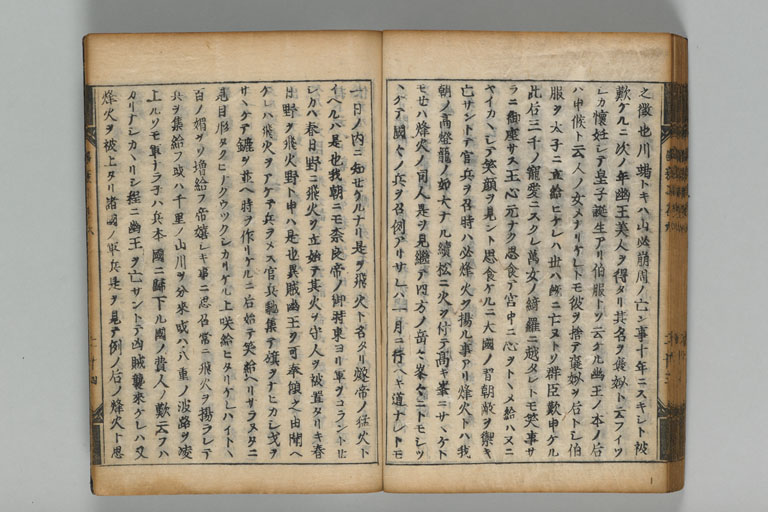 之徴也川竭トキハ山必崩周ノ亡ン事十年ニスキシト被
歎ケルニ次ノ年幽王美人ヲ得タリ其名ヲ褒姒ト云フイツ
シカ懐妊シテ皇子誕生アリ伯服トソ云ケル幽王ノ本ノ后
ハ申候ト云人ノ女メナリケレトモ彼ヲ捨テ褒姒ヲ后トシ伯
服ヲ太子ニ立給ヒケレハ世ハ既ニ亡ヌトソ群臣歎申ケル
此后三千ノ寵愛ニスクレ萬女ノ綺羅ニ越タレトモ笑事サ
ラニ御座サス王心元ナク思食テ宮中ニ心ヲトヽメ給ハヌニ
ヤイカヽシテ笑顔ヲ見ント思食ケルニ大國ノ習朝敵ヲ禦キ
亡サントテ官兵ヲ召時ハ必烽火ヲ揚ル事アリ烽火トハ我
朝ノ高燈籠ノ如大ナル續松ニ火ヲ付テ高キ峯ニサヽケト
モセハ烽火ノ同人是ヲ見継テ四方ノ岳々峯々ニトモシツ
ヽケテ國々ノ兵ヲ召例アリサレハ一月ニ行ヘキ道ナレトモ
一日ノ内ニ知セケルナリ是ヲ飛火ト名タリ燧帝ノ猛火ト
イヘルハ是也我朝ニモ奈良帝ノ御時東ヨリ軍ヲコラントセ
シカハ春日野ニ飛火ヲ立始テ其火ヲ守人ヲ被置タリキ春
日野ヲ飛火野ト申ハ是也異賊幽王ヲ可奉傾之由聞ヘ
ケレハ飛火ヲアケテ兵ヲメス官兵馳集テ旗ヲナヒカシ戈ヲ
サヽケテ鏃ヲ
時ヲ作リケルニ后始テ笑給ヘリサラヌタニ
見目形タクヒノウツクシカリケル上咲給ヒタリケレハイトヽ
百ノ媚ヲソ増給フ帝嬉シキ事ニ思召常ニ飛火ヲ揚ラレテ
兵ヲ集給フ或ハ千里ノ山川ヲ分来或ハ八重ノ波路ヲ凌
上ルソモ軍ナラ子ハ兵本國ニ歸下ル國ノ費人ノ歎云フハ
カリナシカヽリシ程ニ幽王ヲ亡サントテ凶賊襲来ケレハ又
烽火ヲ被上タリ諸國ノ軍兵是ヲ見テ例ノ后ノ烽火ト思